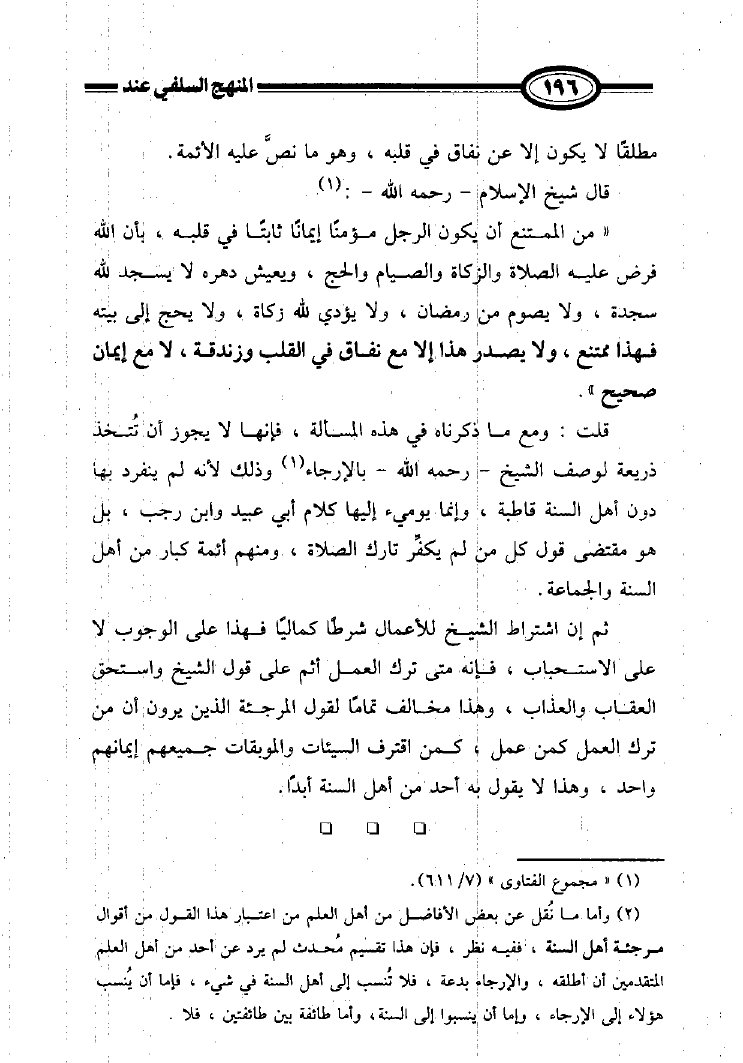 ١٩٦
المنهج السلفي عند
مطلقًا لا يكون إلا عن نفاق في قلبه ، وهو ما نصَّ عليه الأئمة.
قال شيخ الإسلام - رحمه الله - :(١)
« من الممتنع أن يكون الرجل مؤمنًا إيمانًا ثابتًا في قلبه ، بأن الله
فرض عليه الصلاة والزكاة والصيام والحج ، ويعيش دهره لا يسجد لله
سجدة ، ولا يصوم من رمضان ، ولا يؤدي لله زكاة ، ولا يحج إلى بيته
فهذا ممتنع ، ولا يصدر هذا إلا مع نفاق في القلب وزندقة ، لا مع إيمان
صحيح ».
قلت : ومع ما ذكرناه في هذه المسألة ، فإنها لا يجوز أن تُتخذ
ذريعة لوصف الشيخ - رحمه الله - بالإرجاء(١) وذلك لأنه لم ينفرد بها
دون أهل السنة قاطبة ، وإنما يوميء إليها كلام أبي عبيد وابن رجب ، بل
هو مقتضى قول كل من لم يكفِّر تارك الصلاة ، ومنهم أئمة كبار من أهل
السنة والجماعة.
ثم إن اشتراط الشيخ للأعمال شرطًا كماليًا فهذا على الوجوب لا
على الاستحباب ، فإنه متى ترك العمل أثم على قول الشيخ واستحق
العقاب والعذاب ، وهذا مخالف تمامًا لقول المرجئة الذين يرون أن من
ترك العمل كمن عمل ، كمن اقترف السيئات والموبقات جميعهم إيمانهم
واحد ، وهذا لا يقول به أحد من أهل السنة أبدًا.
(١) « مجموع الفتاوى » (٧/ ٦١١).
(٢) وأما ما نُقل عن بعض الأفاضل من أهل العلم من اعتبار هذا القول من أقوال
مرجئة أهل السنة ، ففيه نظر ، فإن هذا تقسيم مُحدث لم يرد عن أحد من أهل العلم
المتقدمين أن أطلقه ، والإرجاء بدعة ، فلا تُنسب إلى أهل السنة في شيء ، فإما أن يُنسب
هؤلاء إلى الإرجاء ، وإما أن ينسبوا إلى السنة، وأما طائفة بين طائفتين ، فلا .